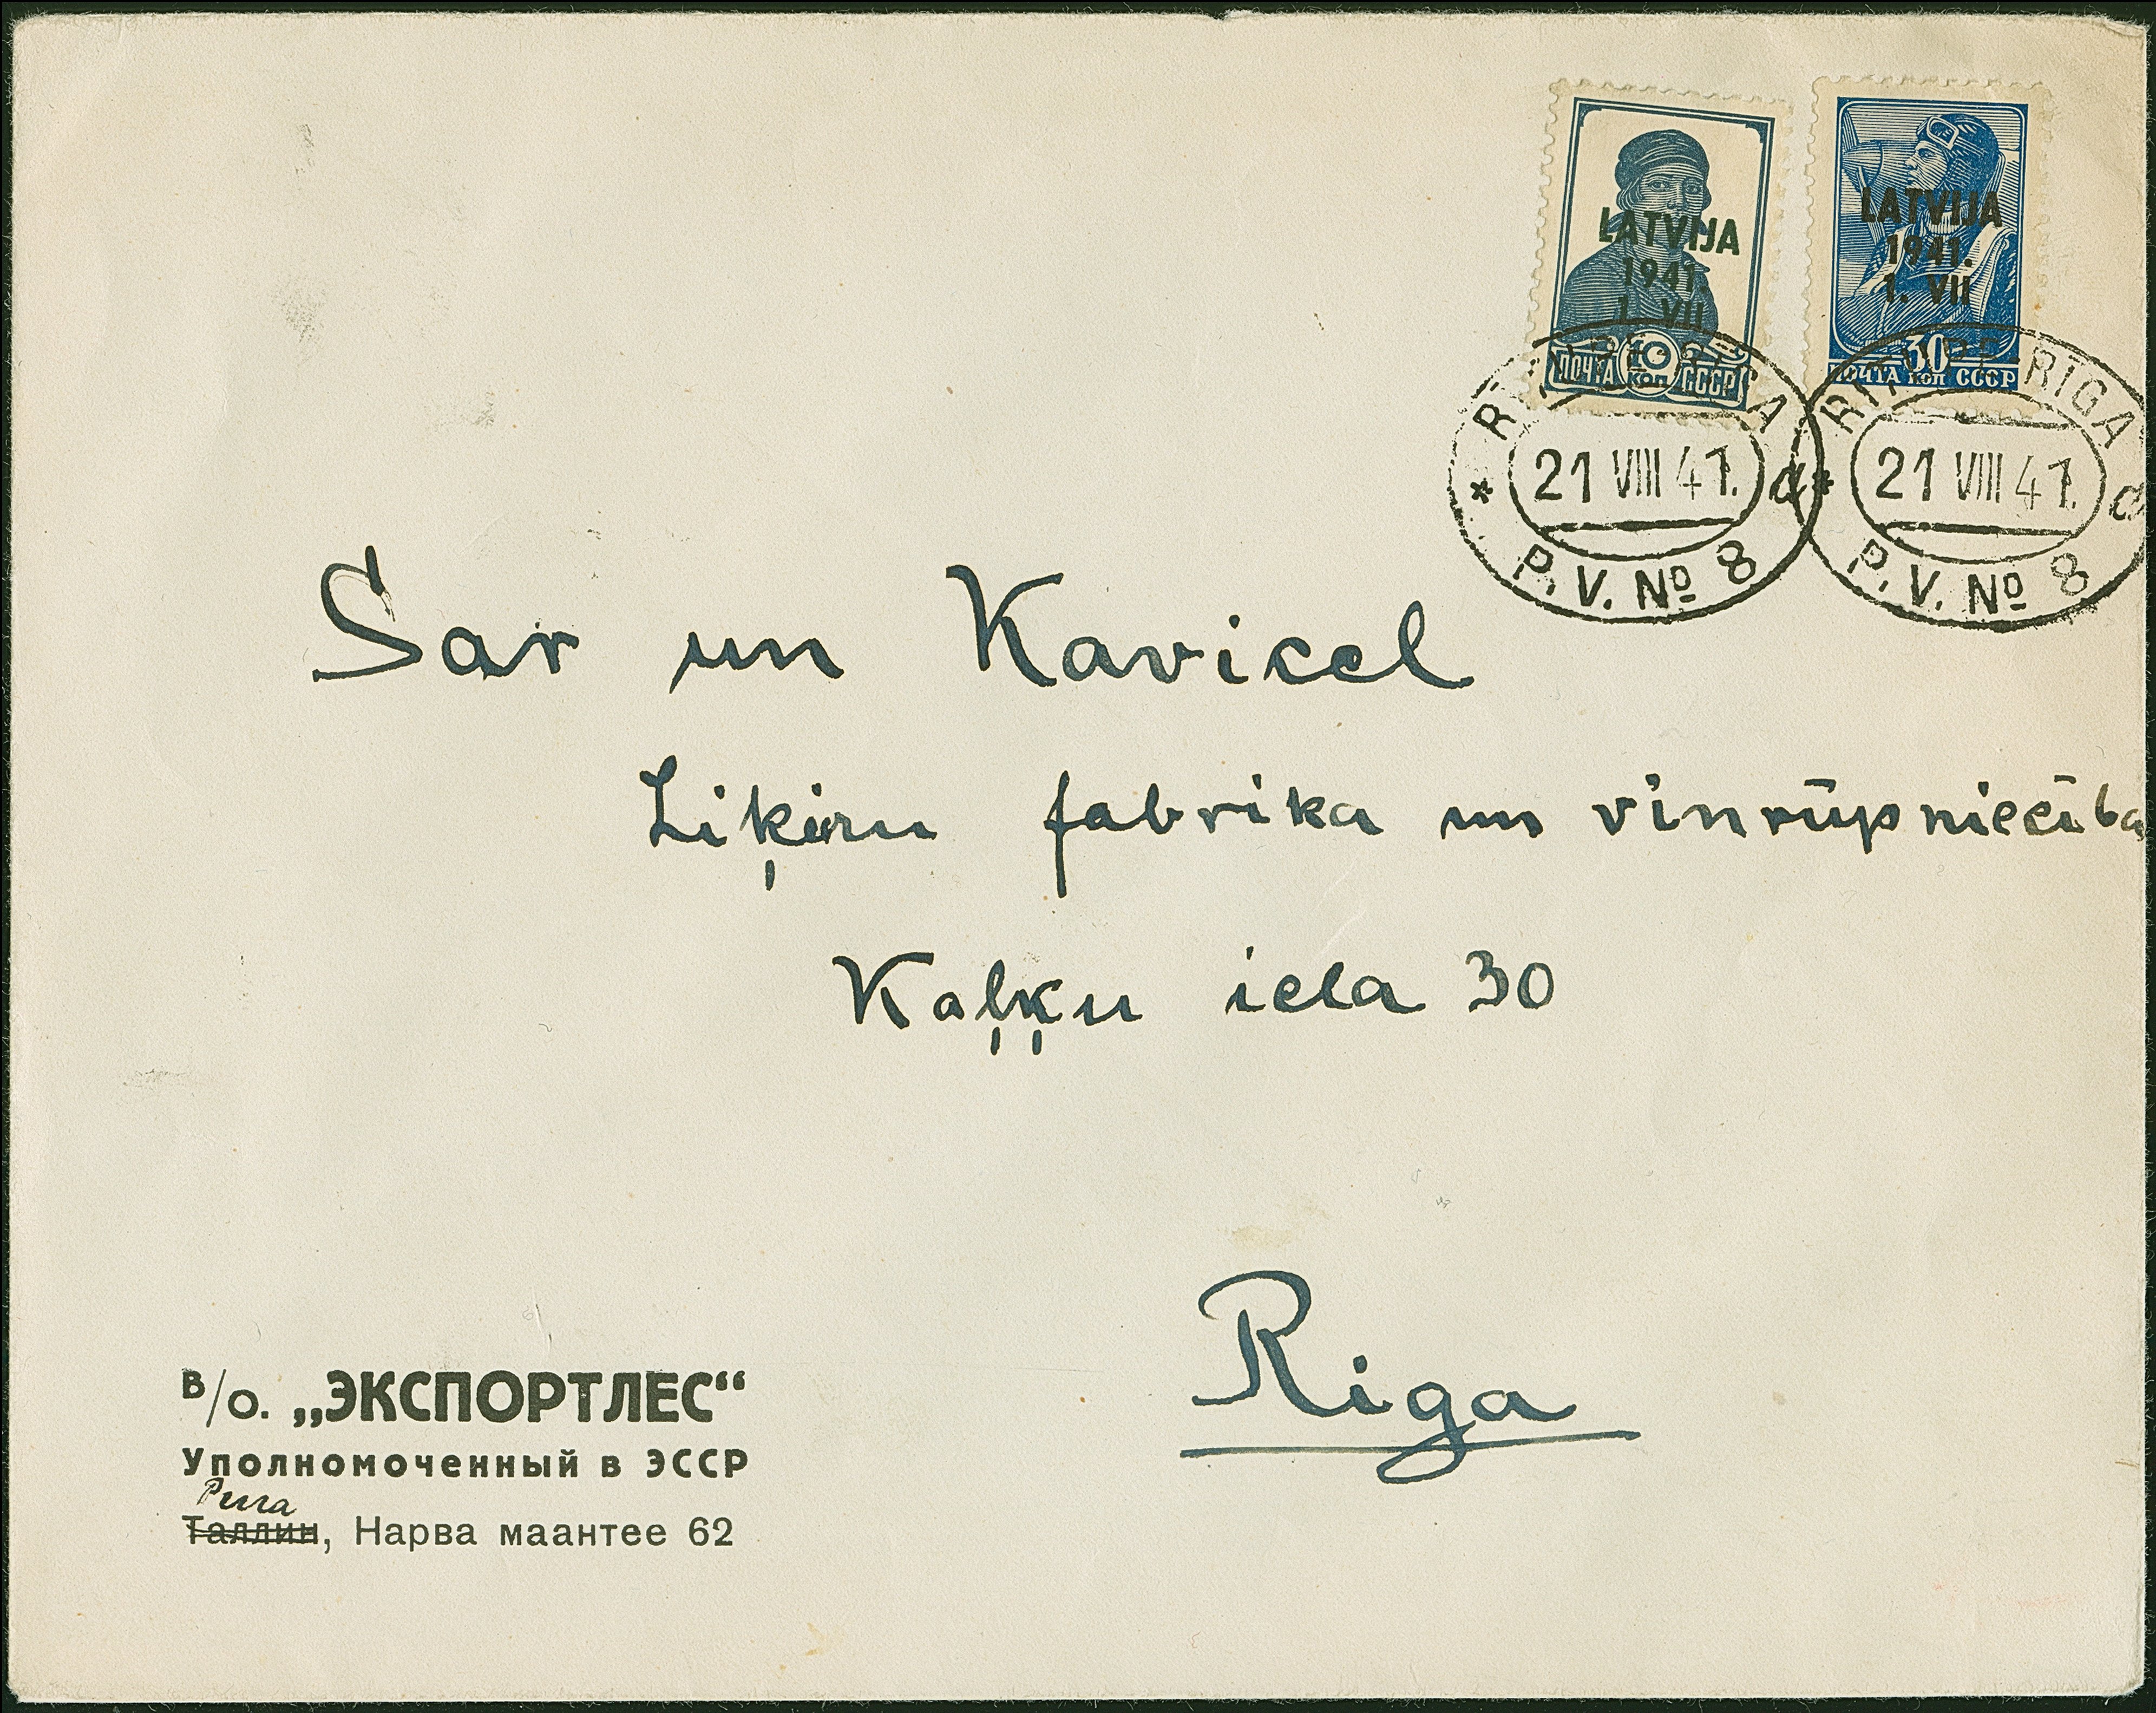 LATVIJA
1941.
1. VII
ПОЧТА 10 КОП СССР
LATVIJA
1941.
1. VII
30
ПОЧТА КОП СССР
RĪGA
21 VIII 41.
d
P. V. № 8
RĪGA
21 VIII 41.
d
P. V. № 8
Sar un Kavicel
Liķieru fabrika un vīnrūpniecība
Kaļķu iela 30
Riga
В/О. „ЭКСПОРТЛЕС“
Уполномоченный в ЭССР
Рига
Таллин, Нарва маантее 62